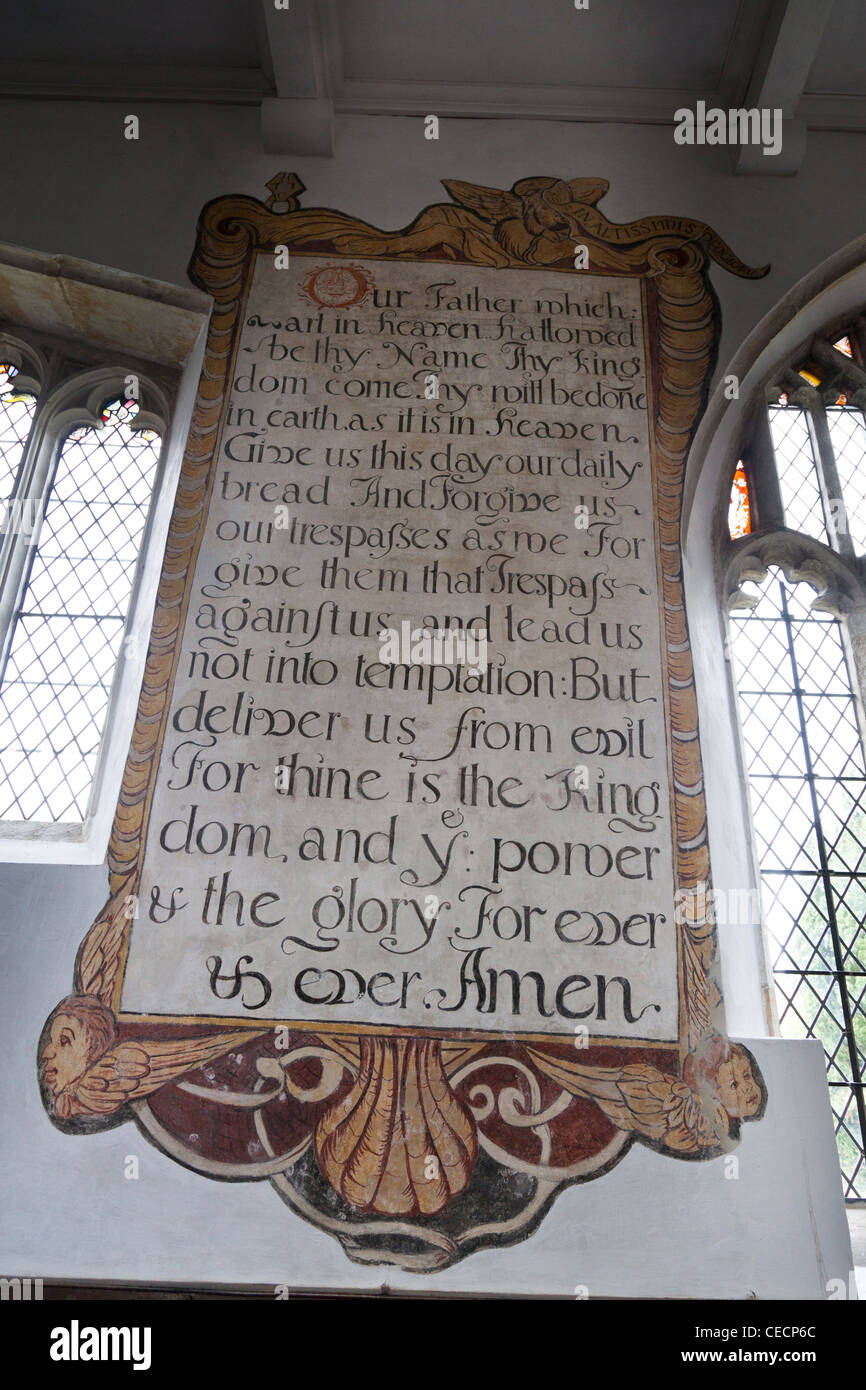 IN ALTISSIMIS
Our Father which:
art in heaven hallowed
be thy Name Thy King
dom come. Thy will be done
in earth, as it is in heaven.
Give us this day our daily
bread And Forgive us
our trespaſses as we For
give them that Trespaſs
againſt us, and lead us
not into temptation: But
deliver us from evil
For thine is the King
dom, and yͤ: power
& the glory For ever
& ever. Amen.
alamy
Image ID: CECP6C
www.alamy.com